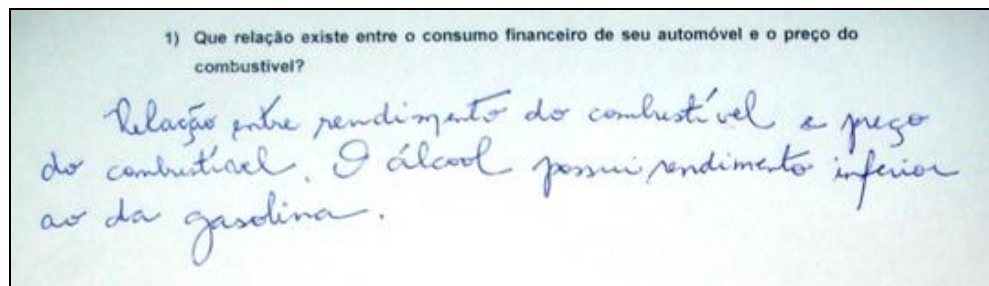 1) Que relação existe entre o consumo financeiro de seu automóvel e o preço do
combustível?
Relação entre rendimento do combustível e preço
do combustível. O álcool possui rendimento inferior
ao da gasolina.